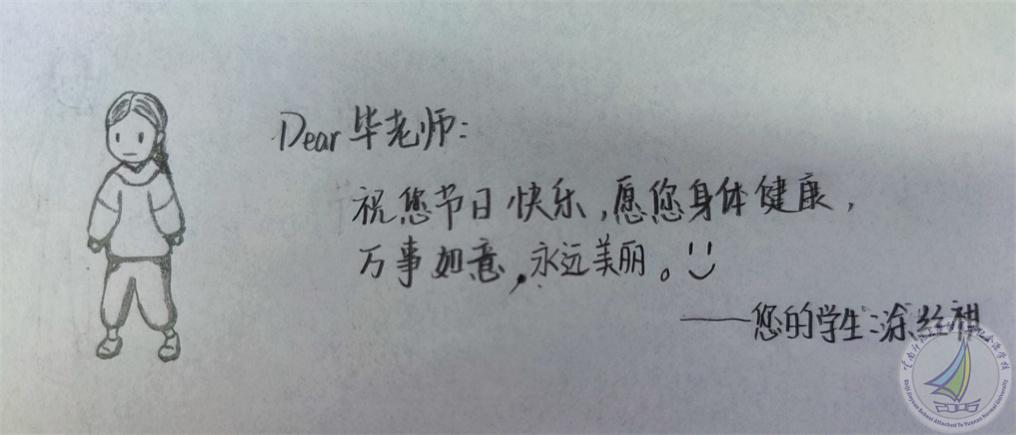 Dear 毕老师：
祝您节日快乐，愿您身体健康，
万事如意，永远美丽。
——您的学生：涂